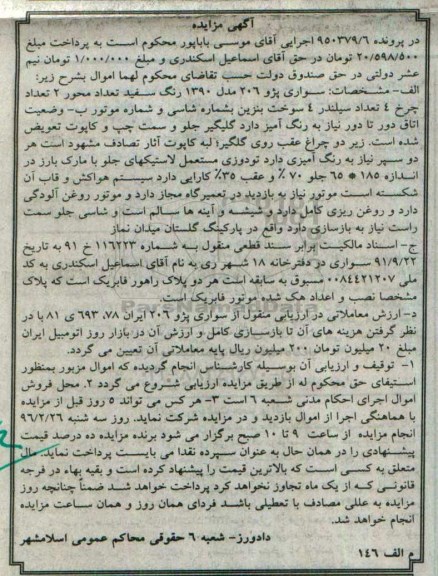 آگهی مزایده
در پرونده ۹۵۰۳۷۹/۶ اجرایی آقای موسی باباپور محکوم است به پرداخت مبلغ
۲۰/۵۹۸/۵۰۰ تومان در حق آقای اسماعیل اسکندری و مبلغ ۱/۰۰۰/۰۰۰ تومان نیم
عشر دولتی در حق صندوق دولت حسب تقاضای محکوم لهما اموال بشرح زیر:
الف- مشخصات: سواری پژو ۲۰۶ مدل ۱۳۹۰ رنگ سفید تعداد محور ۲ تعداد
چرخ ۴ تعداد سیلندر ۴ سوخت بنزین بشماره شاسی و شماره موتور ب- وضعیت
اتاق دور تا دور نیاز به رنگ آمیز دارد گلگیر جلو و سمت چپ و کاپوت تعویض
شده است. زیر دو چراغ عقب روی گلگیر؛ لبه کاپوت آثار تصادف مشهود است هر
دو سپر نیاز به رنگ آمیزی دارد تودوزی مستعمل لاستیکهای جلو با مارک بارز در
اندازه ۱۸۵ * ۶۵ جلو ۷۰٪ و عقب ۳۵٪ کارایی دارد سیستم هواکش و قاب آن
شکسته است موتور نیاز به بازدید در تعمیرگاه مجاز دارد و موتور روغن آلودگی
دارد و روغن ریزی کامل دارد و شیشه و آینه ها سالم است و شاسی جلو سمت
راست نیاز به بازسازی دارد واقع در پارکینگ گلستان میدان نماز
ج- اسناد مالکیت: برابر سند قطعی منقول به شماره ۱۱۶۲۲۳ خ ۹۱ به تاریخ
۹۱/۹/۲۲ سواری در دفترخانه ۱۸ شهر ری به نام آقای اسماعیل اسکندری به کد
ملی ۰۰۸۴۴۲۱۲۰۷ مسبوق به سابقه است هر دو پلاک راهور فابریک است که پلاک
مشخصا نصب و اعداد هک شده موتور فابریک است.
د- ارزش معاملاتی در ارزیابی منقول از سواری پژو ۲۰۶ ایران ۷۸، ۶۹۳ ی ۸۱ با در
نظر گرفتن هزینه های آن تا بازسازی کامل و ارزش آن در بازار روز اتومبیل ایران
مبلغ ۲۰ میلیون تومان ۲۰۰ میلیون ریال پایه معاملاتی آن تعیین می گردد.
۱- توقیف و ارزیابی آن بوسیله کارشناس انجام گردیده که اموال مزبور بمنظور
استیفای حق محکوم له از طریق مزایده ارزیابی شروع می گردد ۲. محل فروش
اموال اجرای احکام مدنی شعبه ۶ است ۳- هر کس می تواند ۵ روز قبل از مزایده
با هماهنگی اجرا از اموال بازدید و در مزایده شرکت نماید. روز سه شنبه ۹۶/۲/۲۶
انجام مزایده از ساعت ۹ تا ۱۰ صبح برگزار می شود برنده مزایده ده درصد قیمت
پیشنهادی را در همان حال به عنوان سپرده نقدا می بایست پرداخت نماید. مال
متعلق به کسی است که بالاترین قیمت را پیشنهاد کرده است و بقیه بهاء در فرجه
قانونی که از یک ماه تجاوز نخواهد کرد پرداخت خواهد شد ضمناً چنانچه روز
مزایده به عللی مصادف با تعطیلی باشد فردای همان روز و همان ساعت مزایده
انجام خواهد شد.
دادورز- شعبه ۶ حقوقی محاکم عمومی اسلامشهر
م الف ۱۴۶